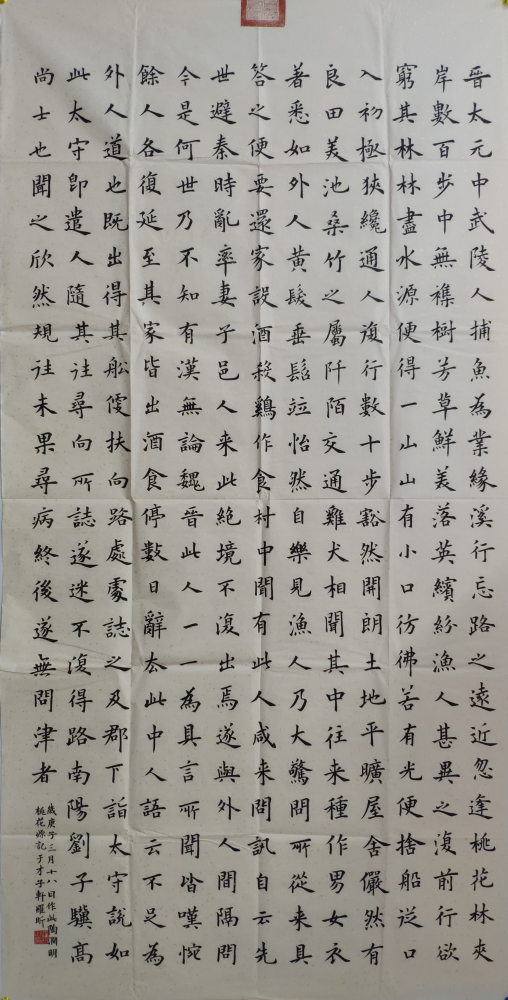 晉太元中武陵人捕魚為業緣溪行忘路之遠近忽逢桃花林夾
岸數百步中無襍樹芳草鮮美落英繽紛漁人甚異之復前行欲
窮其林林盡水源便得一山山有小口彷彿若有光便捨船從口
入初極狹纔通人復行數十步豁然開朗土地平曠屋舍儼然有
良田美池桑竹之屬阡陌交通雞犬相聞其中往來種作男女衣
著悉如外人黃髮垂髫竝怡然自樂見漁人乃大驚問所從来具
答之便要還家設酒殺鷄作食村中聞有此人咸来問訊自云先
世避秦時亂率妻子邑人来此絕境不復出焉遂與外人間隔問
今是何世乃不知有漢無論魏晉此人一一為具言所聞皆嘆惋
餘人各復延至其家皆出酒食停數日辭去此中人語云不足為
外人道也既出得其船便扶向路處處誌之及郡下詣太守說如
此太守即遣人隨其往尋向所誌遂迷不復得路南陽劉子驥高
尚士也聞之欣然規往未果尋病終後遂無問津者
歲庚子三月十八日作此陶淵明
桃花源記于才子軒耀昕